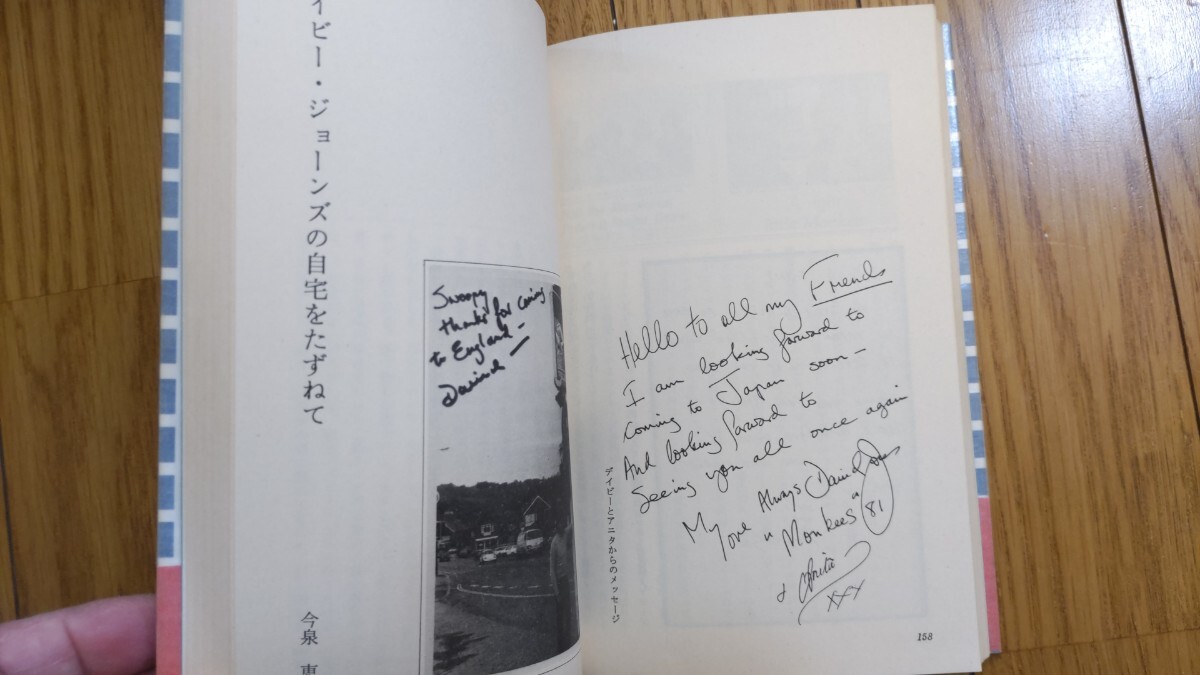 イビー・ジョーンズの自宅をたずねて
今泉 恵
Swoopy
thanks for coming
to England —
David
Hello to all my Friends
I am looking forward to
coming to Japan soon —
And looking forward to
Seeing you all once again
My love Always David Jones
"Monkees" 81
& Anita
xxx
デイビーとアニタからのメッセージ
158